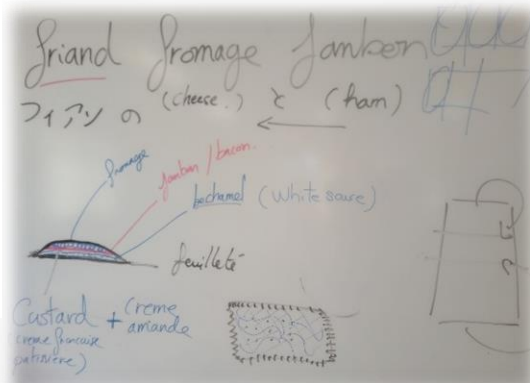 friand fromage Jambon
フィアソ の (cheese.) と (ham)
fromage
Jambon / bacon.
bechamel (White sauce)
feuilleté
Custard + creme
amande
(creme francaise
patissière)